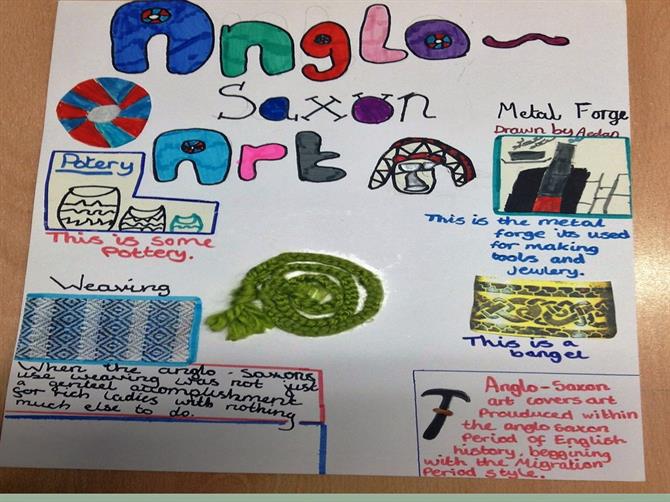 Anglo-
Saxon
Art
Metal Forge
Drawn by Aedan
Potery
This is some
Pottery.
This is the metal
forge its used
for making
tools and
jewlery.
Weaving
This is a
bangel
When the anglo-saxons
use weaving was not just
a genteel accomplishment
for rich ladies with nothing
much else to do.
Anglo-Saxon
art covers art
Prouduced within
the anglo saxon
Period of English
history, beggining
with the Migration
Period style.